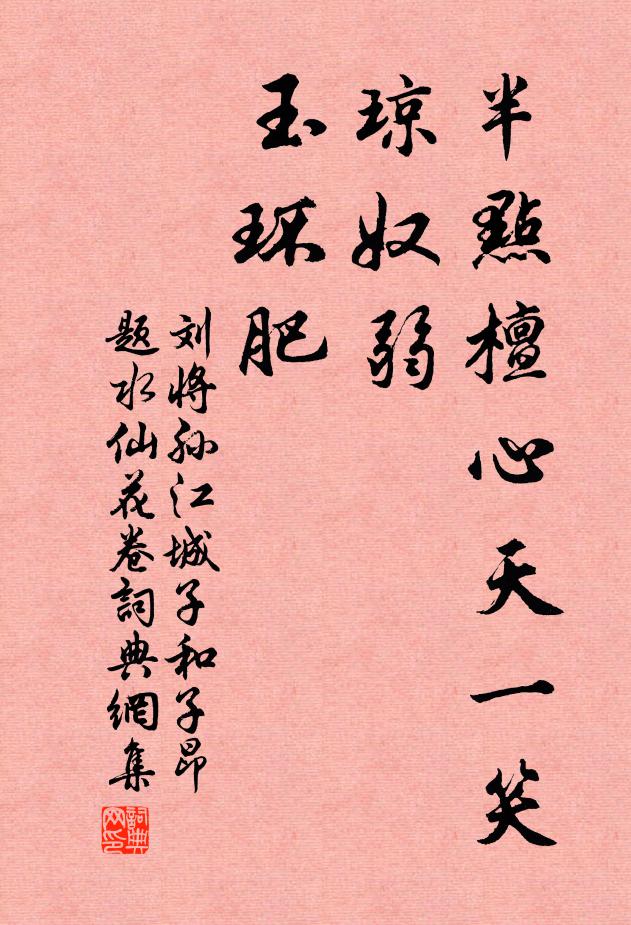 半點檀心天一笑
琼奴弱
玉环肥
刘将孙江城子和子昂
题水仙花卷詞典網集
詞典网印